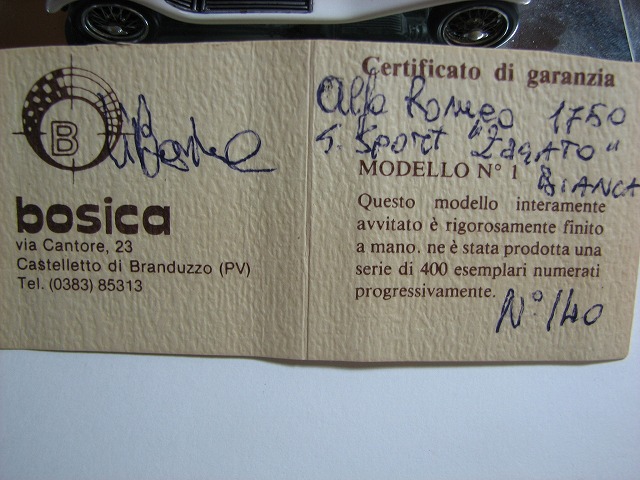 B
bosica
via Cantore, 23
Castelletto di Branduzzo (PV)
Tel. (0383) 85313
Certificato di garanzia
Alfa Romeo 1750
S. Sport "Zagato"
MODELLO N° 1 BIANCA
Questo modello interamente
avvitato è rigorosamente finito
a mano. ne è stata prodotta una
serie di 400 esemplari numerati
progressivamente.
N° 140